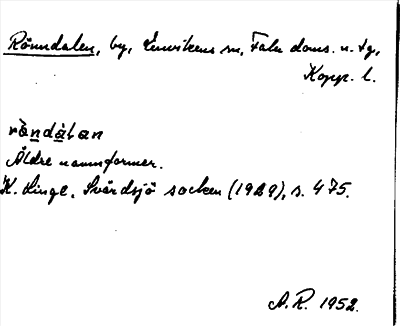 Rönndalen, by, Envikens sn, Falu doms. n. tg,
Kopp. l.
rǜndàlan
Äldre namnformer.
K. Linge, Svärdsjö socken (1929), s. 475.
A. R. 1952.